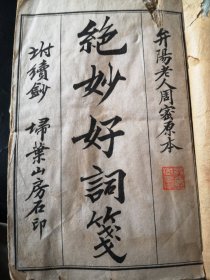 弁陽老人周密原本
絕妙好詞箋
坿續鈔
掃葉山房石印